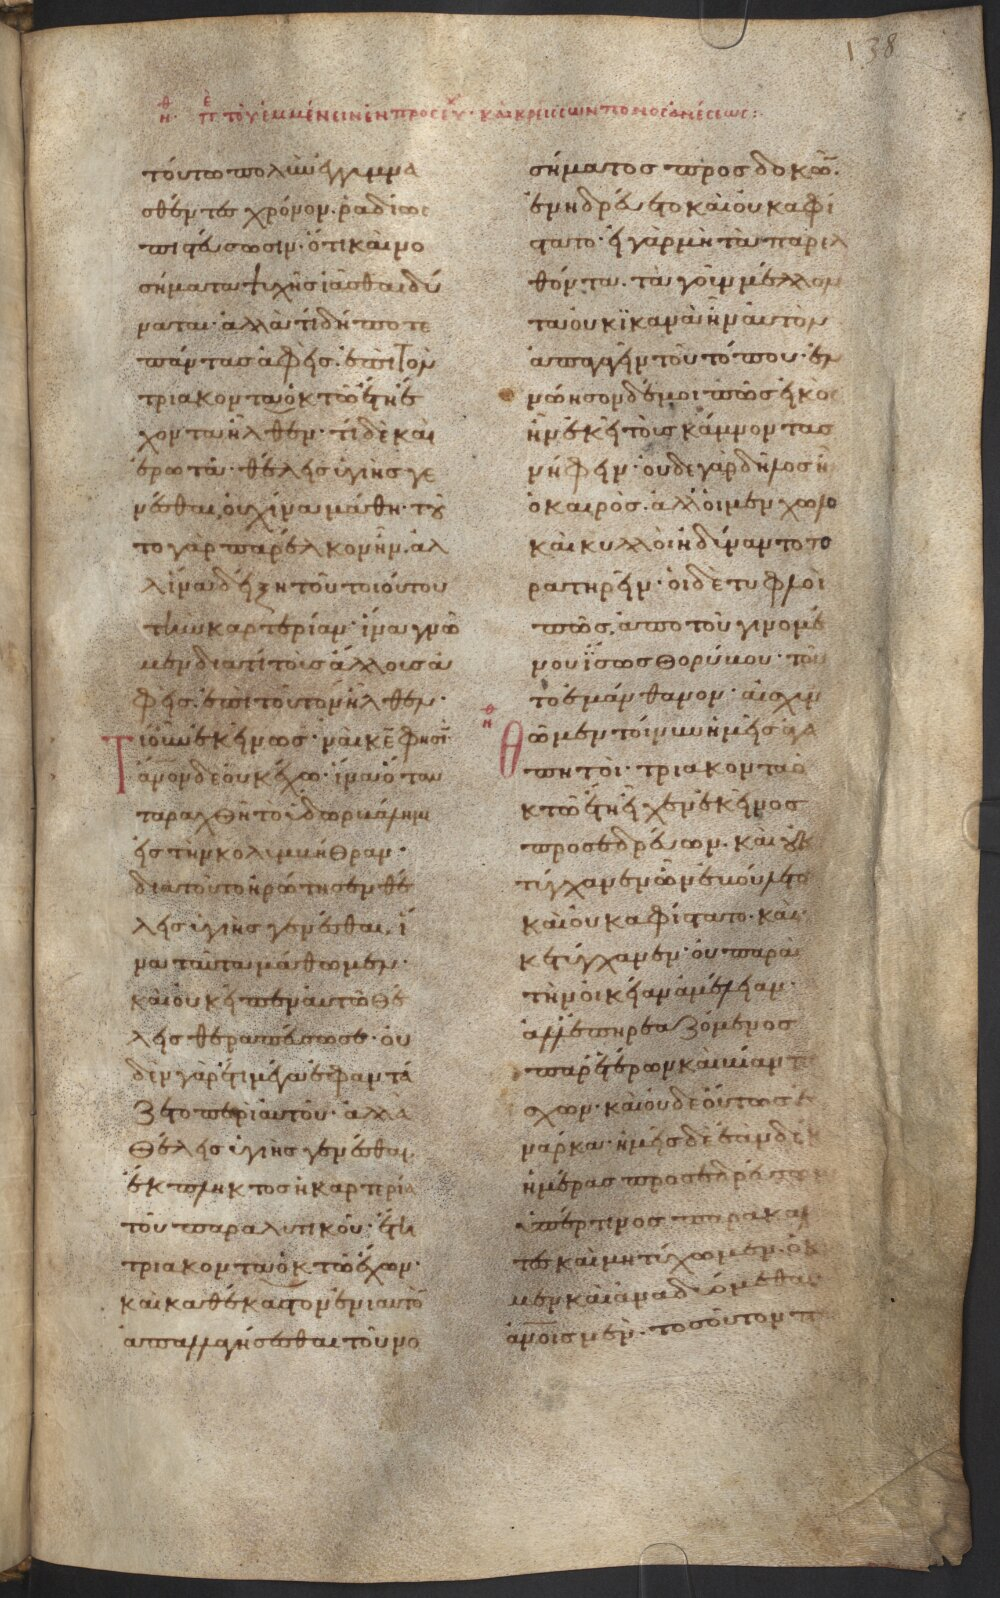 θ
η · ε
π του εμμένειν ἐν προσευχ · καὶ κρείσσων πόνος ἀνέσεως :
138
τούτω πολὺν ἐγγυμνα
σθέντες χρόνον. ῥαδίως
πιστεύσωσιν · ὅτι καὶ νο
σήματα ψυχῆς ἰᾶσθαι δύ
ναται · ἀλλὰ τί δήποτε
πάντας ἀφεὶς · ἐπὶ τὸν
τριακονταοκτὼ ἔτη ἔ
χοντα ἦλθεν · τί δὲ καὶ
ἐρωτᾶ · θέλεις ὑγιὴς γε
νέσθαι, οὐχ ἵνα μάθη · τοῦ
το γὰρ παρέλκον ἦν. ἀλ
λ' ἵνα δείξη τοῦ τοιούτου
τὴν καρτερίαν · ἵνα γνῶ
μεν διατί τοὺς ἄλλους ἀ
φεὶς. ἐπὶ τοῦτον ἦλθεν ·
Τί οὖν ἐκεῖνος · ναὶ κε φησὶν
ανον δε οὐκ ἔχω · ἵνα ὅταν
ταραχθῆ τὸ ὕδωρ βάλη με
εἰς τὴν κολυμβήθραν ·
διὰ τοῦτο ἠρώτησεν θέ
λεις ὑγιὴς γενέσθαι. ἵ
να ταῦτα μάθωμεν ·
καὶ οὐκ εἶπεν αὐτῶ θέ
λεις θεραπεύσω σε · οὐ
δὲν γὰρ ἔτι μέγα ἐφαντά
ζετο περὶ αὐτοῦ · ἀλλὰ
θέλεις ὑγιὴς γενέσθαι,
ἔκπληκτος ἡ καρτερία
τοῦ παραλυτικοῦ · ἔτη
τριακονταοκτὼ ἔχων ·
καὶ καθέκαστον ἐνιαυτὸ
ἀπαλλαγήσεσθαι τοῦ νο
σήματος προσδοκῶν.
ἐνηδρεύετο καὶ οὐκ ἀφί
στατο · εἰ γὰρ μὴ τὰ παρελ
θόντα. τὰ γοῦν μέλλον
τα οὐκ ἱκανὰ ἦν αὐτὸν
ἀπαγαγεῖν τοῦ τόπου · ἐν
νόησον δέ μοι πῶς εἰκὸς
ἦν ἐκεῖ τοὺς κάμνοντας
νήφειν · οὐδε γὰρ δῆλος ἦν
ὁ καιρός. ἀλλ' οἱ μὲν χωλοὶ
καὶ κυλλοὶ ἠδύναντο το
ρατηρεῖν · οἱ δὲ τυφλοὶ
πῶς. ἀπο τοῦ γινομέ
νου ἴσως θορύβου · τοῦ
το ἐμάνθανον · αἰσχυν
θ
η
θῶμεν τοίνυν ἡμεῖς ἀγα
πητοὶ · τριακονταο
κτὼ ἔτη εἶχεν ἐκεῖνος
προσεδρεύων. καὶ οὐκ
τύγχανεν ὧν ἐβούλετο
καὶ οὐκ ἀφίστατο · καὶ
κ ετύγχανεν · οὐ παρὰ
τὴν οἰκείαν ἀμέλειαν ·
ἀλλ' ἐπηρεαζόμενος
παρ' ἑτέρων καὶ βίαν
σχων · καὶ οὐδε οὕτως ἐ
νάρκα · ἡμεῖς δὲ ἐὰν δέκ
ἡμέρας προσεδρεύσω
ὑπέρ τινος παρακα
τες καὶ μὴ τύχωμεν. ὀκ
μεν καὶ ἀναδυόμεθα
ανοις μὲν · τοσοῦτον